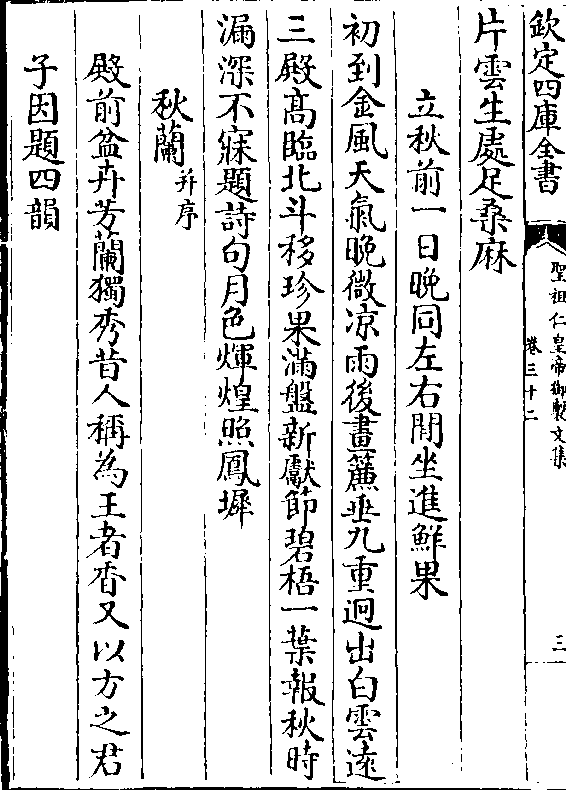 欽定四庫全書
聖祖仁皇帝御製文集
卷三十二
三
片雲生處足桑麻
立秋前一日晚同左右閒坐進鮮果
初到金風天氣晚微凉雨後畫簾垂九重迥出白雲遠
三殿髙臨北斗移珍果滿盤新獻節碧梧一葉報秋時
漏深不寐題詩句月色輝煌照鳳墀
秋蘭并序
殿前盆卉芳蘭獨秀昔人稱為王者香又以方之君
子因題四韻